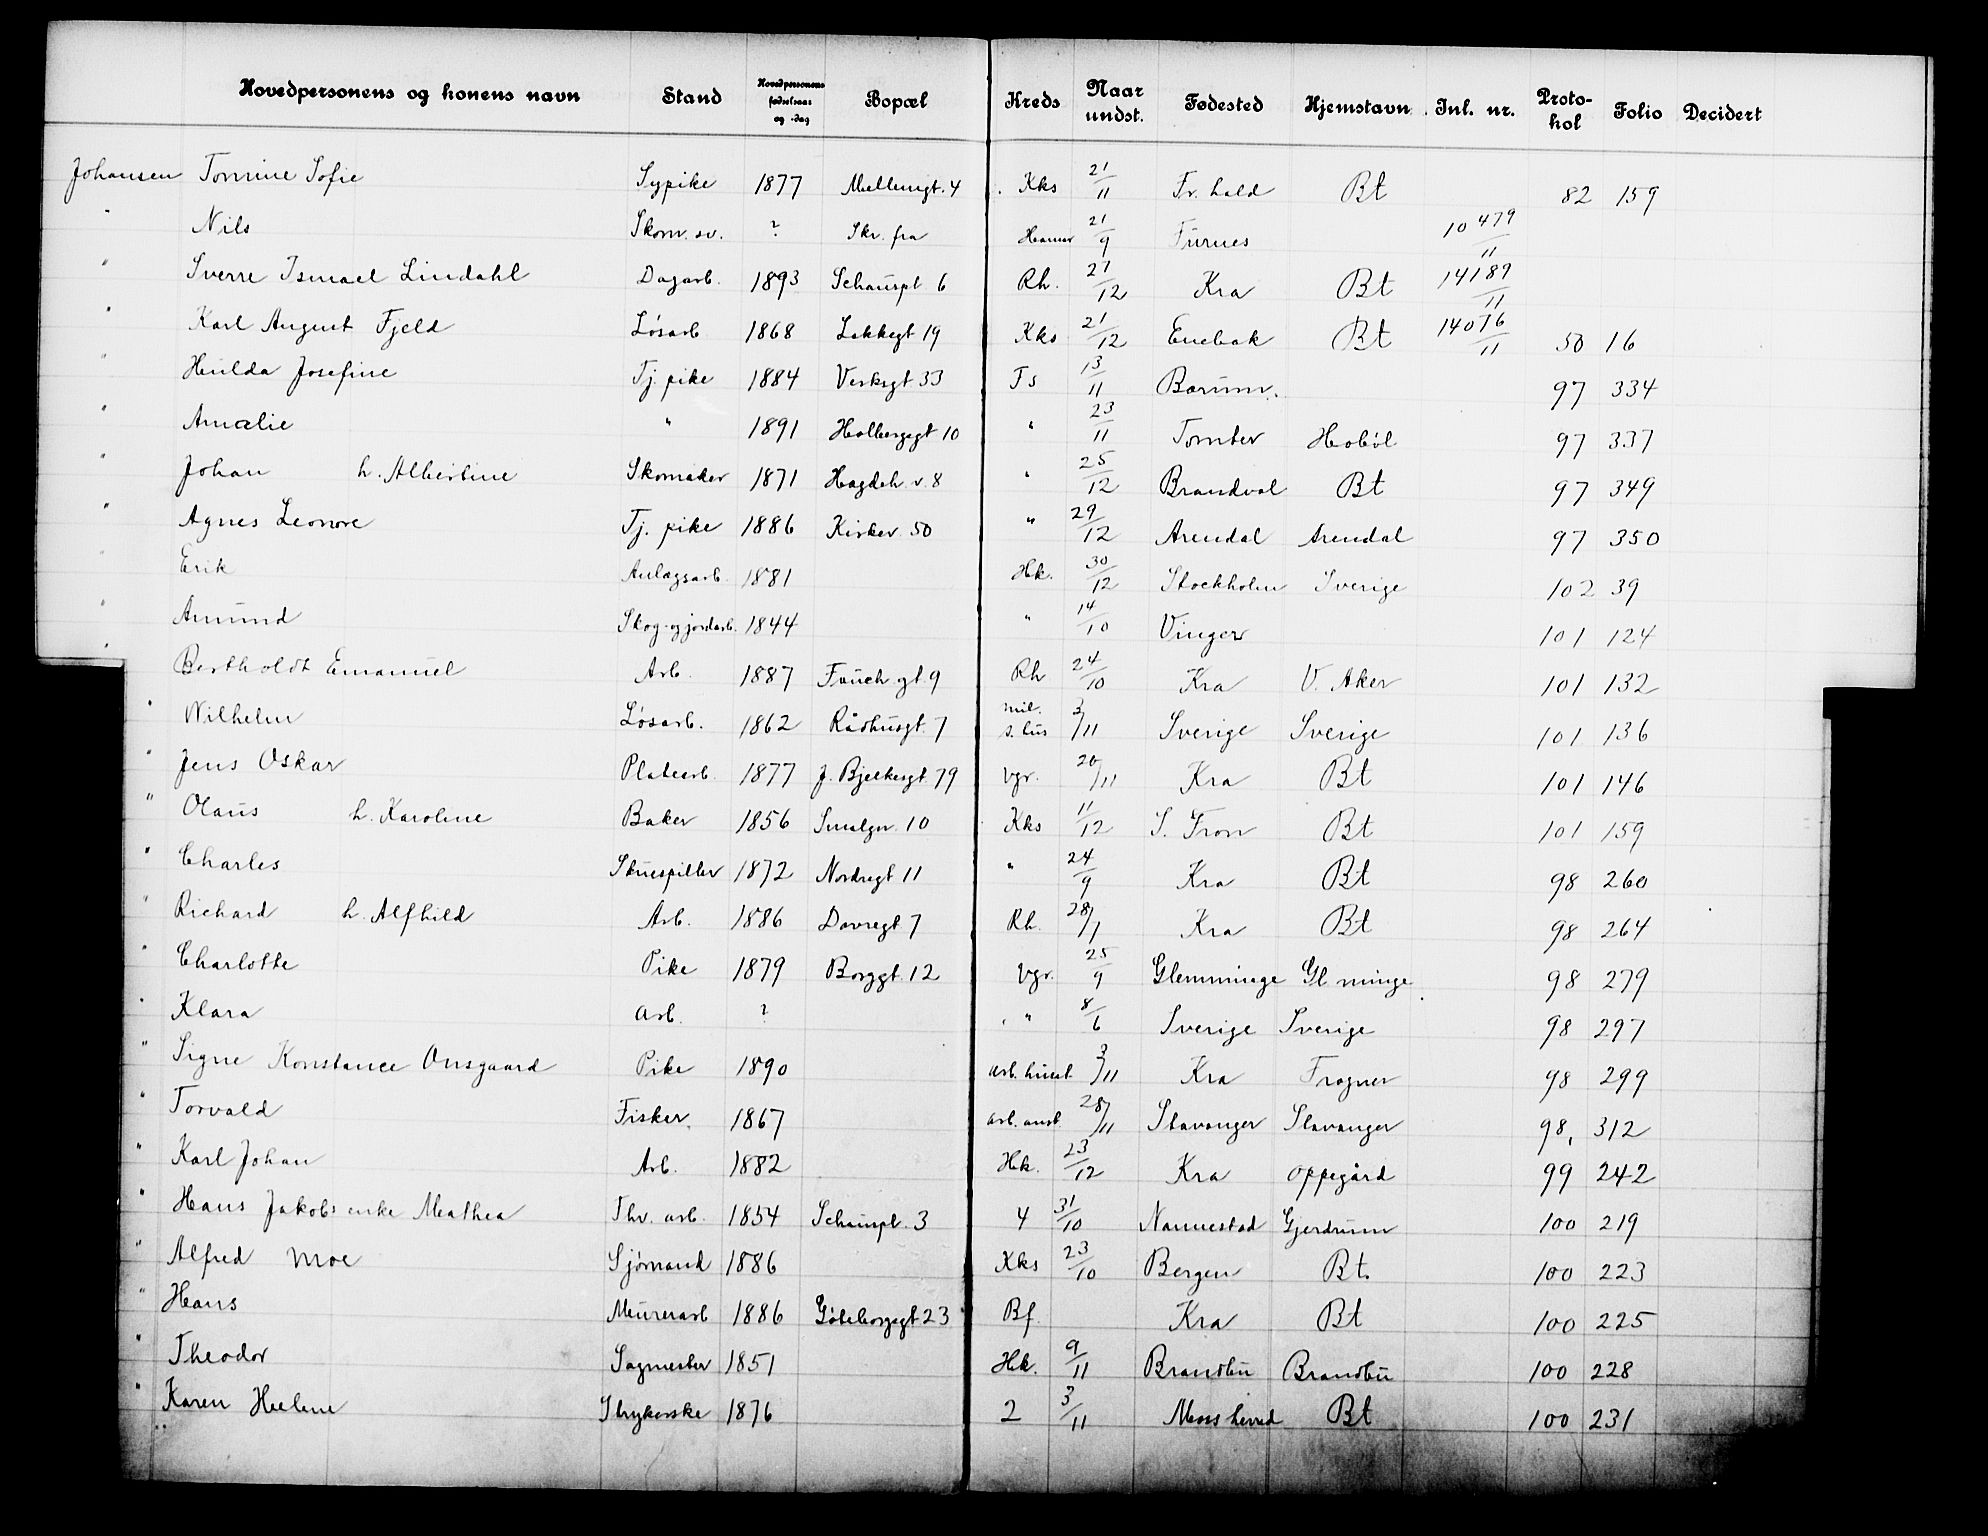 Hovedpersonens og konens navn Stand Hovedpersonens fødselsaar og -dag Bopæl Kreds Naar undst. Fødested Hjemstavn Jnl. nr. Protokol Folio Decidert
Johansen Tomine Sofie Sypike 1877 Møllergt. 4 Kks 21/11 Fr.hald Bt 82 159
" Nils Skom. sv. ? Skr. fra Hamar 21/9 Furnes 10479/11
" Sverre Ismael Lindahl Dagarb. 1893 Schauspl. 6 Rh. 27/12 Kra Bt 14189/11
" Karl August Fjeld Løsarb. 1868 Lakkegt 19 Kks 21/12 Enebak Bt 14076/11 50 16
" Hulda Josefine Tj. pike 1884 Verksgt 33 Fs 13/11 Bærum. 97 334
" Amalie " 1891 Holbergsgt 10 " 23/11 Tomter Hobøl 97 337
" Johan h. Albertine Skomaker 1871 Hagdeh. v. 8 " 25/12 Brandval Bt 97 349
" Agnes Leonore Tj. pike 1886 Kirkev. 50 " 29/12 Arendal Arendal 97 350
" Erik Anlægsarb. 1881 Hk. 30/12 Stockholm Sverige 102 39
" Amund Skog- og jordarb. 1844 " 14/10 Vinger 101 124
" Bertholdt Emanuel Arb. 1887 Fauch. gt. 9 Rh 24/10 Kra V. Aker 101 132
" Wilhelm Løsarb. 1862 Rådhusgt. 7 mil. s. hus 3/11 Sverige Sverige 101 136
" Jens Oskar Platearb. 1877 J. Bjelkesgt 79 Vgr. 20/11 Kra Bt 101 146
" Olaus h. Karoline Baker 1856 Smalgn. 10 Kks 11/12 S. Fron Bt 101 159
" Charles Skuespiller 1872 Nordregt 11 " 24/9 Kra Bt 98 260
" Richard h. Alfhild Arb. 1886 Dovregt 7 Rh. 28/1 Kra Bt 98 264
" Charlotte Pike 1879 Borggt. 12 Vgr. 25/9 Glemminge Gl.minge 98 279
" Klara Arb. ? " 8/6 Sverige Sverige 98 297
" Signe Konstance Onsgaard Pike 1890 arb. huset 3/11 Kra Frogner 98 299
" Torvald Fisker. 1867 arb. anst. 28/11 Stavanger Stavanger 98, 312
" Karl Johan Arb. 1882 Hk. 23/12 Kra Oppegård 99 242
" Hans Jakobs enke Mathea Thv. arb. 1854 Schauspl. 3 4 31/10 Nannestad Gjerdrum 100 219
" Alfred Moe Sjømand 1886 Kks 23/10 Bergen Bt. 100 223
" Hans Murerarb 1886 Gøteborgsgt 23 Bf. Kra Bt 100 225
" Theodor Sagmester 1851 Hk. 9/11 Brandbu Brandbu 100 228
" Karen Helene Strykerske 1876 2 3/11 Moss herred Bt 100 231